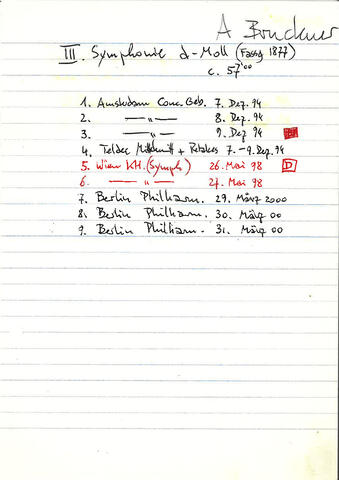 A Bruckner
III. Symphonie d-Moll (Fassg 1877)
c. 57'00
1. Amsterdam Conc. Geb. 7. Dez. 94
2. —— " —— 8. Dez. 94
3. —— " —— 9. Dez 94
4. Teldec Mitschnitt + Retakes 7.-9. Dez. 94
5. Wien KH. (Symph) 26. Mai 98 D
6. —— " —— 27. Mai 98
7. Berlin Philharm. 29. März 2000
8. Berlin Philharm. 30. März 00
9. Berlin Philharm. 31. März 00